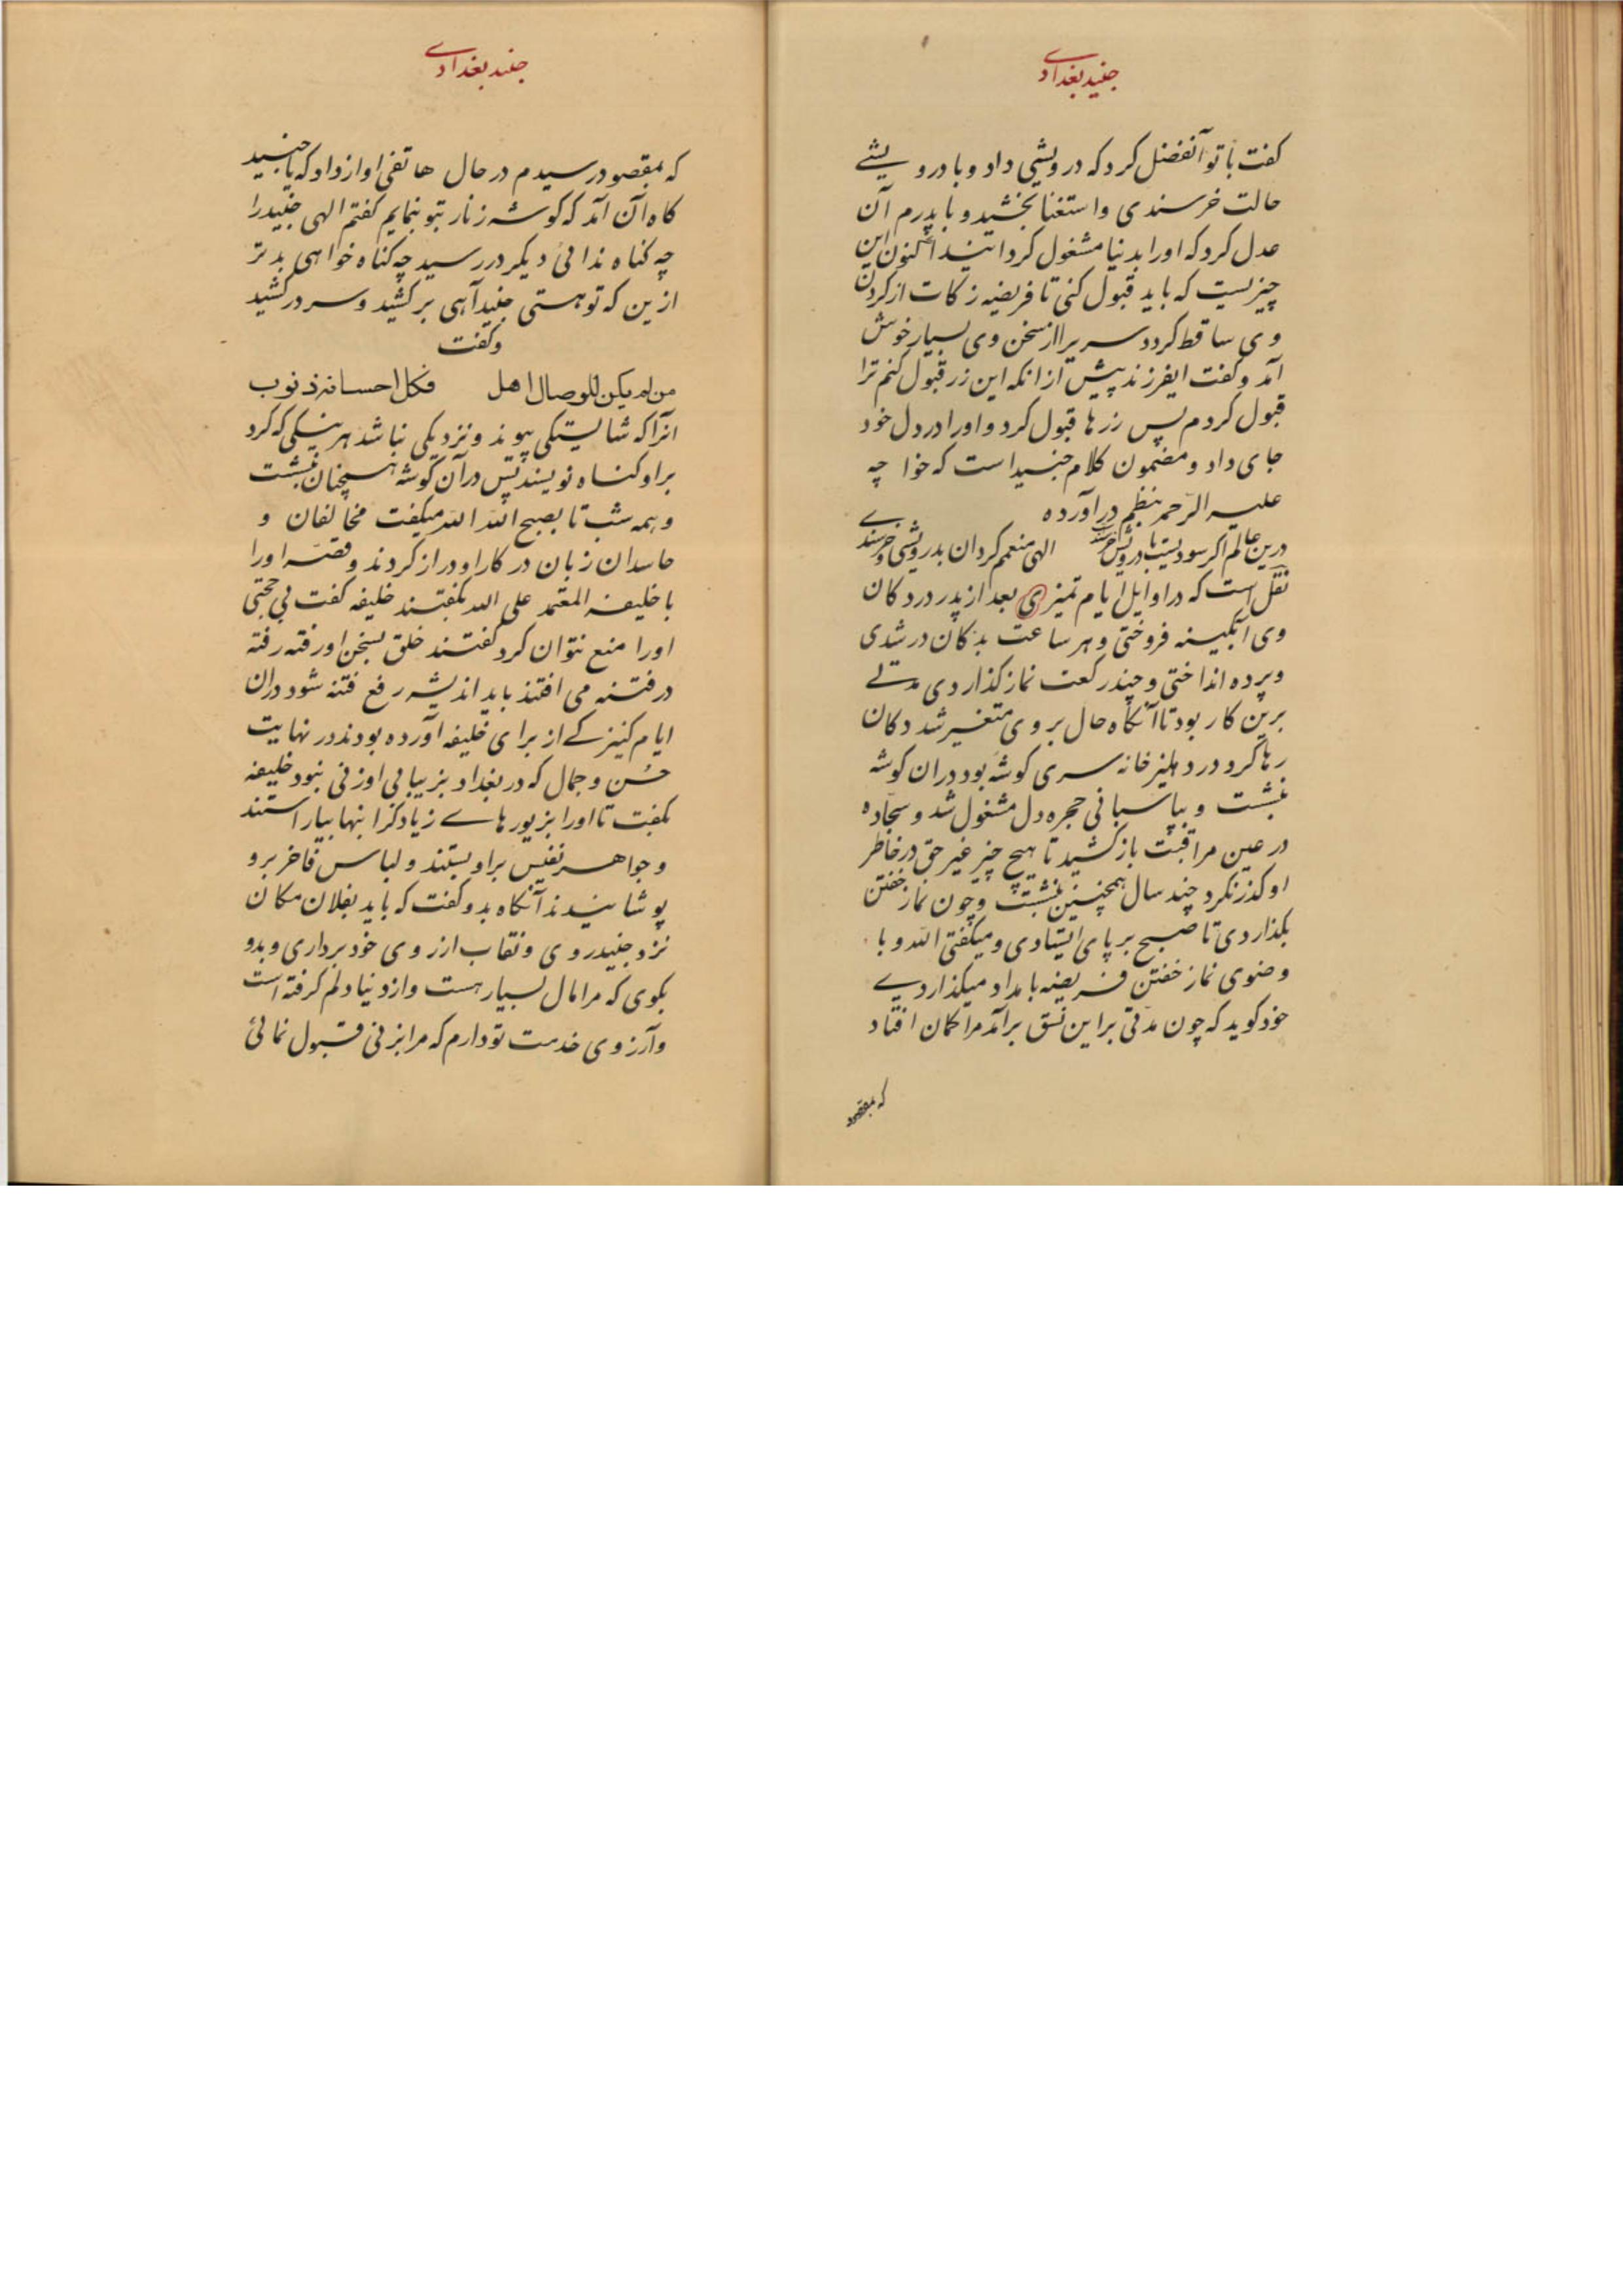 جنید بغدادے
کفت با تو آنفضل کرد که درویشی داد و با درویشے
حالت خرسندی و استغنا بخشید و با پدرم آن
عدل کرد که اورا بدنیا مشغول کردانید اکنون این
چیزیست که باید قبول کنی تا فریضه زکات از کردن
وی ساقط کردد سریرا از سخن وی بسیار خوش
آمد و کفت ایفرزند پیش از انکه این زر قبول کنم ترا
قبول کردم پس زرها قبول کرد و اورا در دل خود
جای داد و مضمون کلام جنید است که خواجه
علیه الرحمه بنظم در آورده
درین عالم اگر سودیست با درویش خرسندست الهی منعمم کردان بدرویشی و خرسندے
نقل است که در اوایل ایام تمیزی بعد از پدر در دکان
وی آبکینه فروختی و هر ساعت بدکان در شدی
و پرده انداختی و چند رکعت نماز کذاردی مدتے
برین کار بود تا آنکاه حال بر وی متغیر شد دکان
رها کرد در دهلیز خانه سری کوشه بود دران کوشه
نبشست و بپاسبانی حجره دل مشغول شد و سجاده
در عین مراقبت باز کشید تا هیچ چیز غیر حق در خاطر
او کذر نکرد چند سال همچنین نبشست و چون نماز خفتن
بکذاردی تا صبح بر پای ایستادی و میکفتی الله و با
وضوی نماز خفتن فریضه بامداد میکذاردے
خود کوید که چون مدتی براین نسق برآمد مرا کمان افتاد
که بمقصود
جنید بغدادے
که بمقصود رسیدم در حال هاتفی اواز داد که یا جنید
کاه آن آمد که کوشه زنار بتو نمایم کفتم الهی جنید را
چه کناه ندائی دیکر در رسید چه کناه خواهی بدتر
ازین که تو هستی جنید آهی بر کشید و سر در کشید
و کفت
من لم یکن للوصال اهل فکل احسانه ذنوب
انرا که شایستکی پیوند و نزدیکی نباشد هر نیکی که کرد
بر او کناه نویسند پس در آن کوشه همچنان نبشست
و همه شب تا بصبح الله الله میکفت مخالفان و
حاسدان زبان در کار او دراز کردند و قصه اورا
با خلیفه المعتمد علی الله بکفتند خلیفه کفت بی حجتی
اورا منع نتوان کرد کفتند خلق بسخن او رفته رفته
در فتنه می افتند باید اندیشه رفع فتنه شود دران
ایام کنیزکے از برای خلیفه آورده بودند در نهایت
حسن و جمال که در بغداد بزیبائی او زنی نبود خلیفه
بکفت تا اورا بزیورهاے زیاد کرانبها بیاراستند
و جواهر نفیس براو بستند و لباس فاخر برو
پوشانیدند آنکاه بدو کفت که باید بفلان مکان
نزد جنید روی و نقاب از روی خود برداری و بدو
بکوی که مرا مال بسیار هست و از دنیا دلم کرفته است
و آرزوی خدمت تو دارم که مرا بزنی قبول نمائی